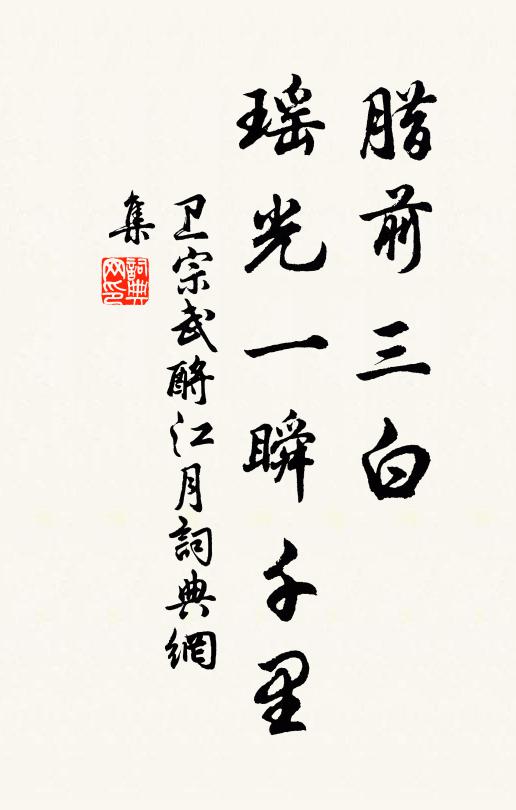 腊前三白
瑶光一瞬千里
卫宗武酹江月詞典網
集
詞典
网印